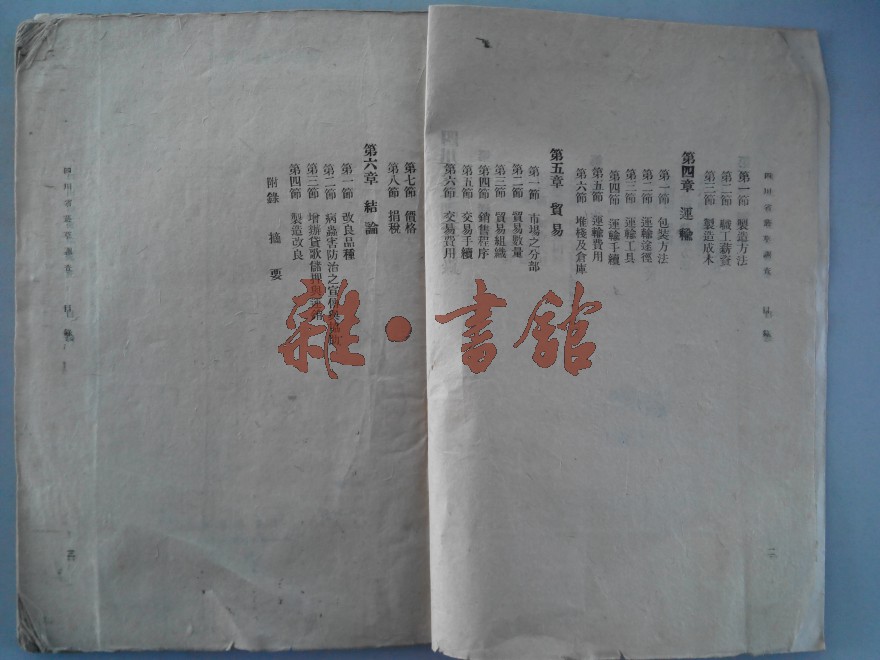 第一節 製造方法
第二節 職工薪資
第三節 製造成本
第四章 運輸
第一節 包裝方法
第二節 運輸途徑
第三節 運輸工具
第四節 運輸手續
第五節 運輸費用
第六節 堆棧及倉庫
第五章 貿易
第一節 市場之分部
第二節 貿易數量
第三節 貿易組織
第四節 銷售程序
第五節 交易手續
第六節 交易費用
二
第七節 價格
第八節 捐稅
第六章 結論
第一節 改良品種
第二節 病蟲害防治之宣傳與
第三節 增辦貸款儲押與運銷
第四節 製造改良
附錄 摘要
雜·書館